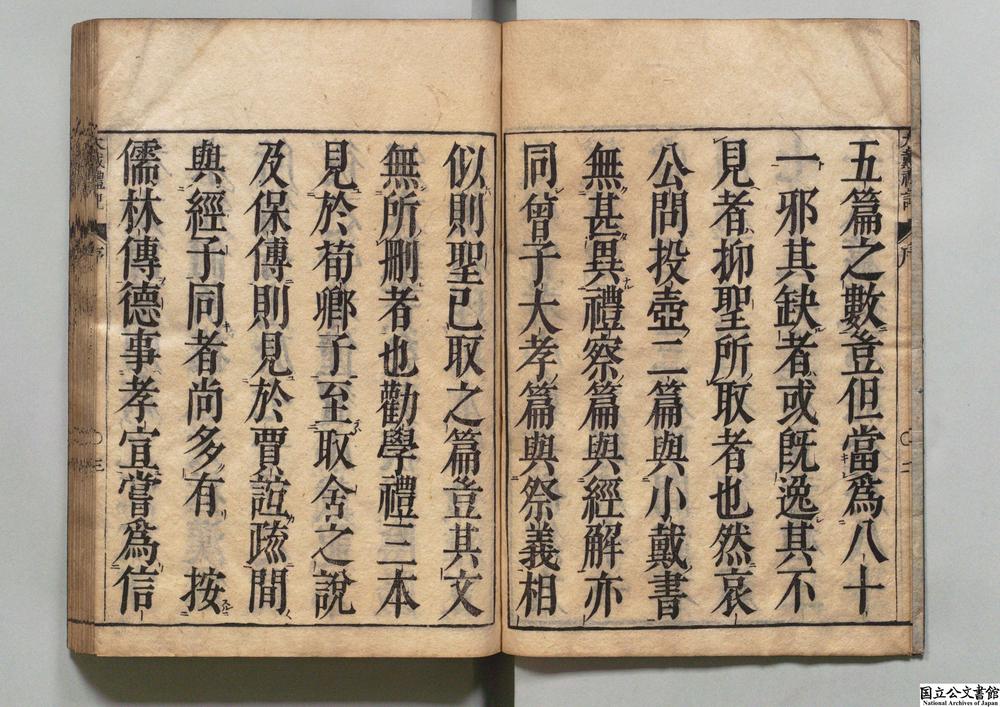 五篇之數豈但當爲八十
一邪其缺者或既逸其不
見者抑聖所取者也然哀
公問投壺二篇與小戴書
無甚異禮察篇與經解亦
同曾子大孝篇與祭義相
似則聖已取之篇豈其文
無所刪者也勸學禮三本
見於荀鄉子至取舍之說
及保傅則見於賈誼疏間
與經子同者尚多有　按
儒林傳德事孝宣嘗爲信
大戴禮記
序
三
国立公文書館
National Archives of Japan